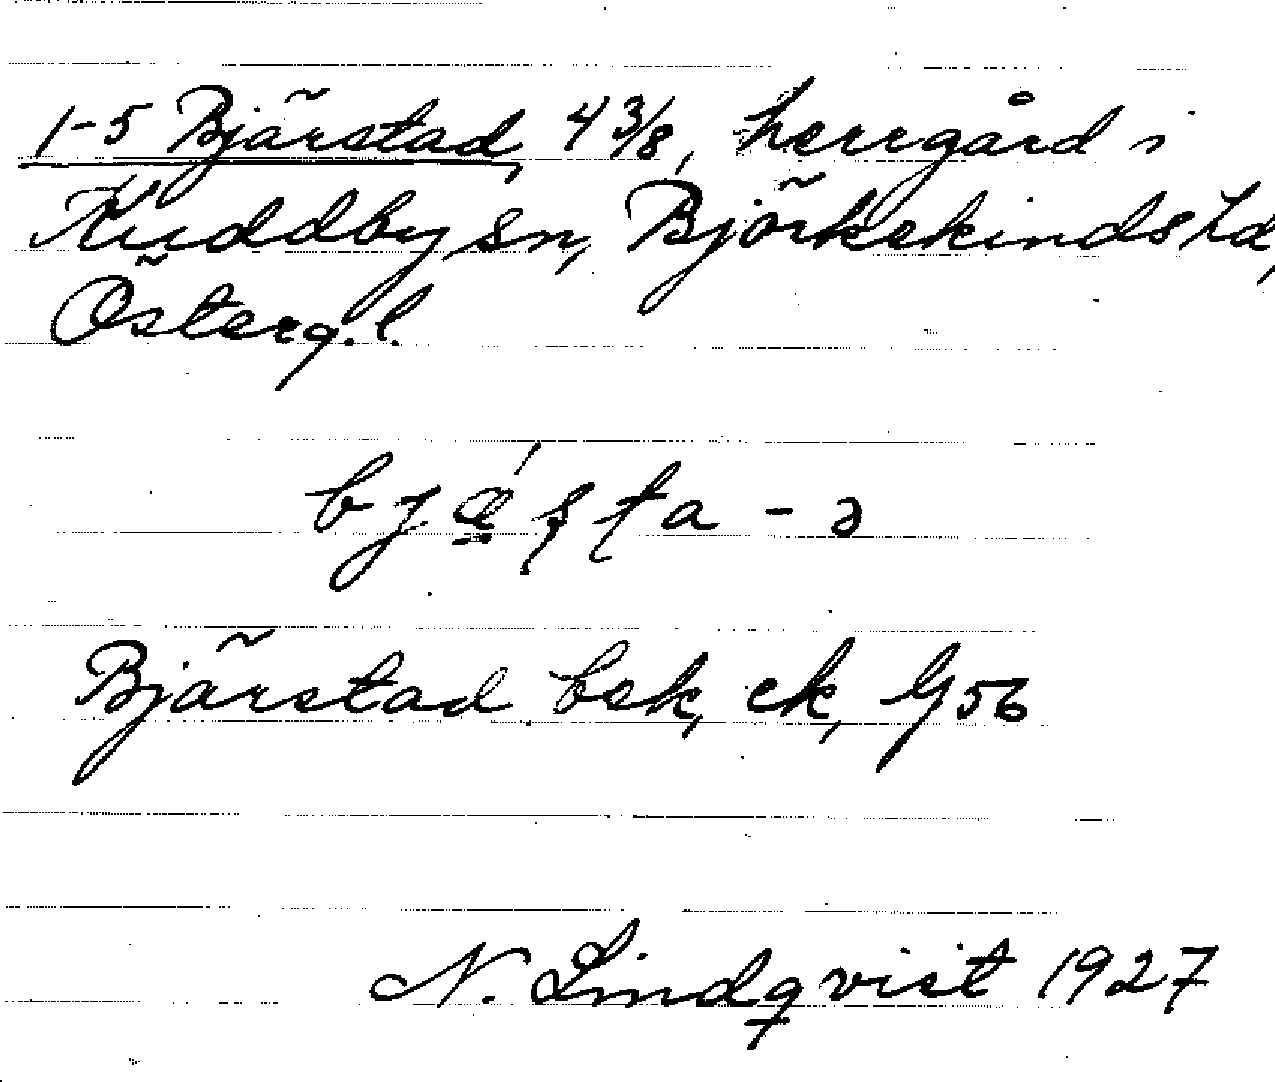 1-5 Bjärstad, 4 3/8, herrgård i
Kuddby sn, Björkekinds hd,
Österg. l.
bjǽʂʈa - ə
Bjärstad bsk, ek, G 56
N. Lindqvist 1927